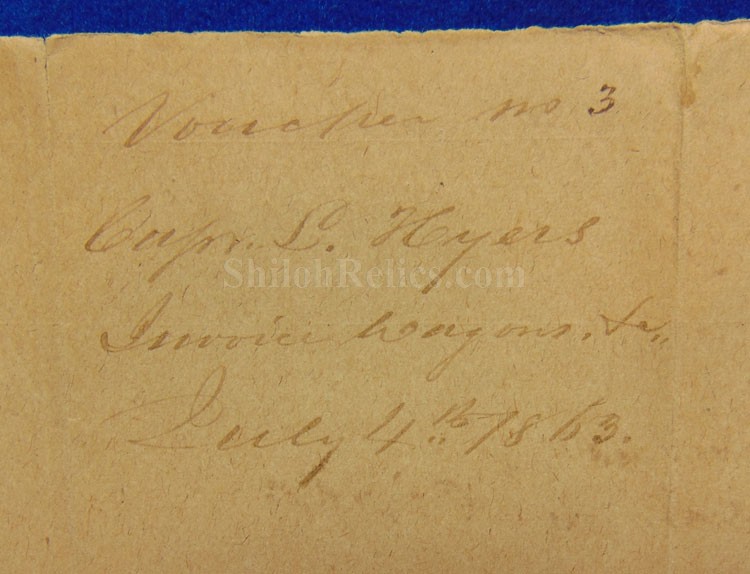 Voucher no 3
Capt. L. Hyers
ShilohRelics.com
Invoice Wagons. &c.,
July 4th 1863.